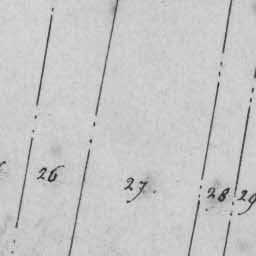 26
27.
28
29